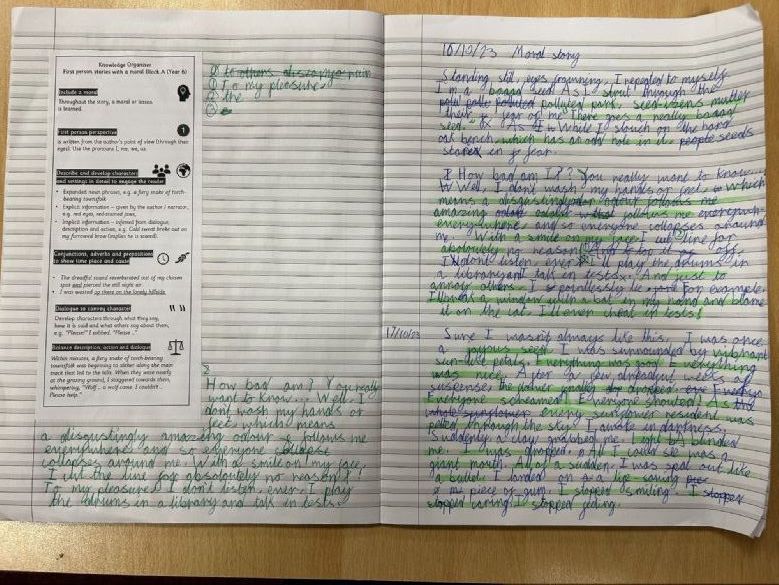 Knowledge Organiser
First person stories with a moral Block A (Year 6)
Include a moral
Throughout the story, a moral or lesson
is learned.
First person perspective
is written from the author's point of view (through their
eyes). Use the pronouns I, me, we, us.
Describe and develop characters
and settings in detail to engage the reader
Expanded noun phrases, e.g. a fiery snake of torch-
bearing townsfolk
Explicit information – given by the author / narrator,
e.g. red eyes, red-stained jaws,
Implicit information – inferred from dialogue,
description and action, e.g. Cold sweat broke out on
my furrowed brow (implies he is scared).
Conjunctions, adverbs and prepositions
to show time place and cause
The dreadful sound reverberated out of my chosen
spot and pierced the still night air
I was wasted up there on the lonely hillside
Dialogue to convey character
Develop characters through what they say,
how it is said and what others say about them,
e.g. "Please!" I sobbed. "Please..."
Balance description, action and dialogue
Within minutes, a fiery snake of torch-bearing
townsfolk was beginning to slither along the main
track that led to the hills. When they were nearly
at the grazing ground, I staggered towards them,
whimpering, "Wolf... a wolf came. I couldn't...
Please help."
to others
To my pleasure
the
How bad am I? You really
want to know... Well, I
dont wash my hands or
feet, which means
a disgustingly amazing odour follows me
everywhere and so everyone
collapses around me. With a smile on my face,
I cut the line for absolutely no reason!
To my pleasure, I don't listen, ever. I play
the drums in a library and talk in tests.
10/10/23 Moral story
Standing still, eyes frowning, I repeated to myself
I'm a baaad seed. As I strut through the
polluted park, seed-izens mutter
There goes a really baaad
seed. While I slouch on the hard
oak bench, which has an odd hole in it, people seeds
in fear.
How bad am I? You really want to know...
Well, I dont wash my hands or feet, which
means a disgustingly
amazing odour follows me
everywhere, and so everyone collapses around
me. With a smile on my face I cut line for
absolutely no reason
I don't listen, ever. I'll play the drums in
a library and talk in tests. And just to
annoy others, I pointlessly lie. For example,
a window with a bat in my hand and blame
it on the cat. I'll even cheat in tests!
17/10/23
Sure I wasn't always like this. I was once
a joyous seed. I was surrounded by vibrant
sun-like petals. Everything was good. Everything
was nice. After a few weeks of
suspense, the
Everyone screamed! Everyone shouted! As
every sunflower resident was
through the sky. I awoke in darkness,
Suddenly, a claw grabbed me. Light blinded
me. I was dropped. All I could see was a
giant mouth. All of a sudden, I was spat out like
a bullet. I landed on a life-saving
piece of gum. I stopped smiling. I stopped
stopped caring. I stopped feeling.